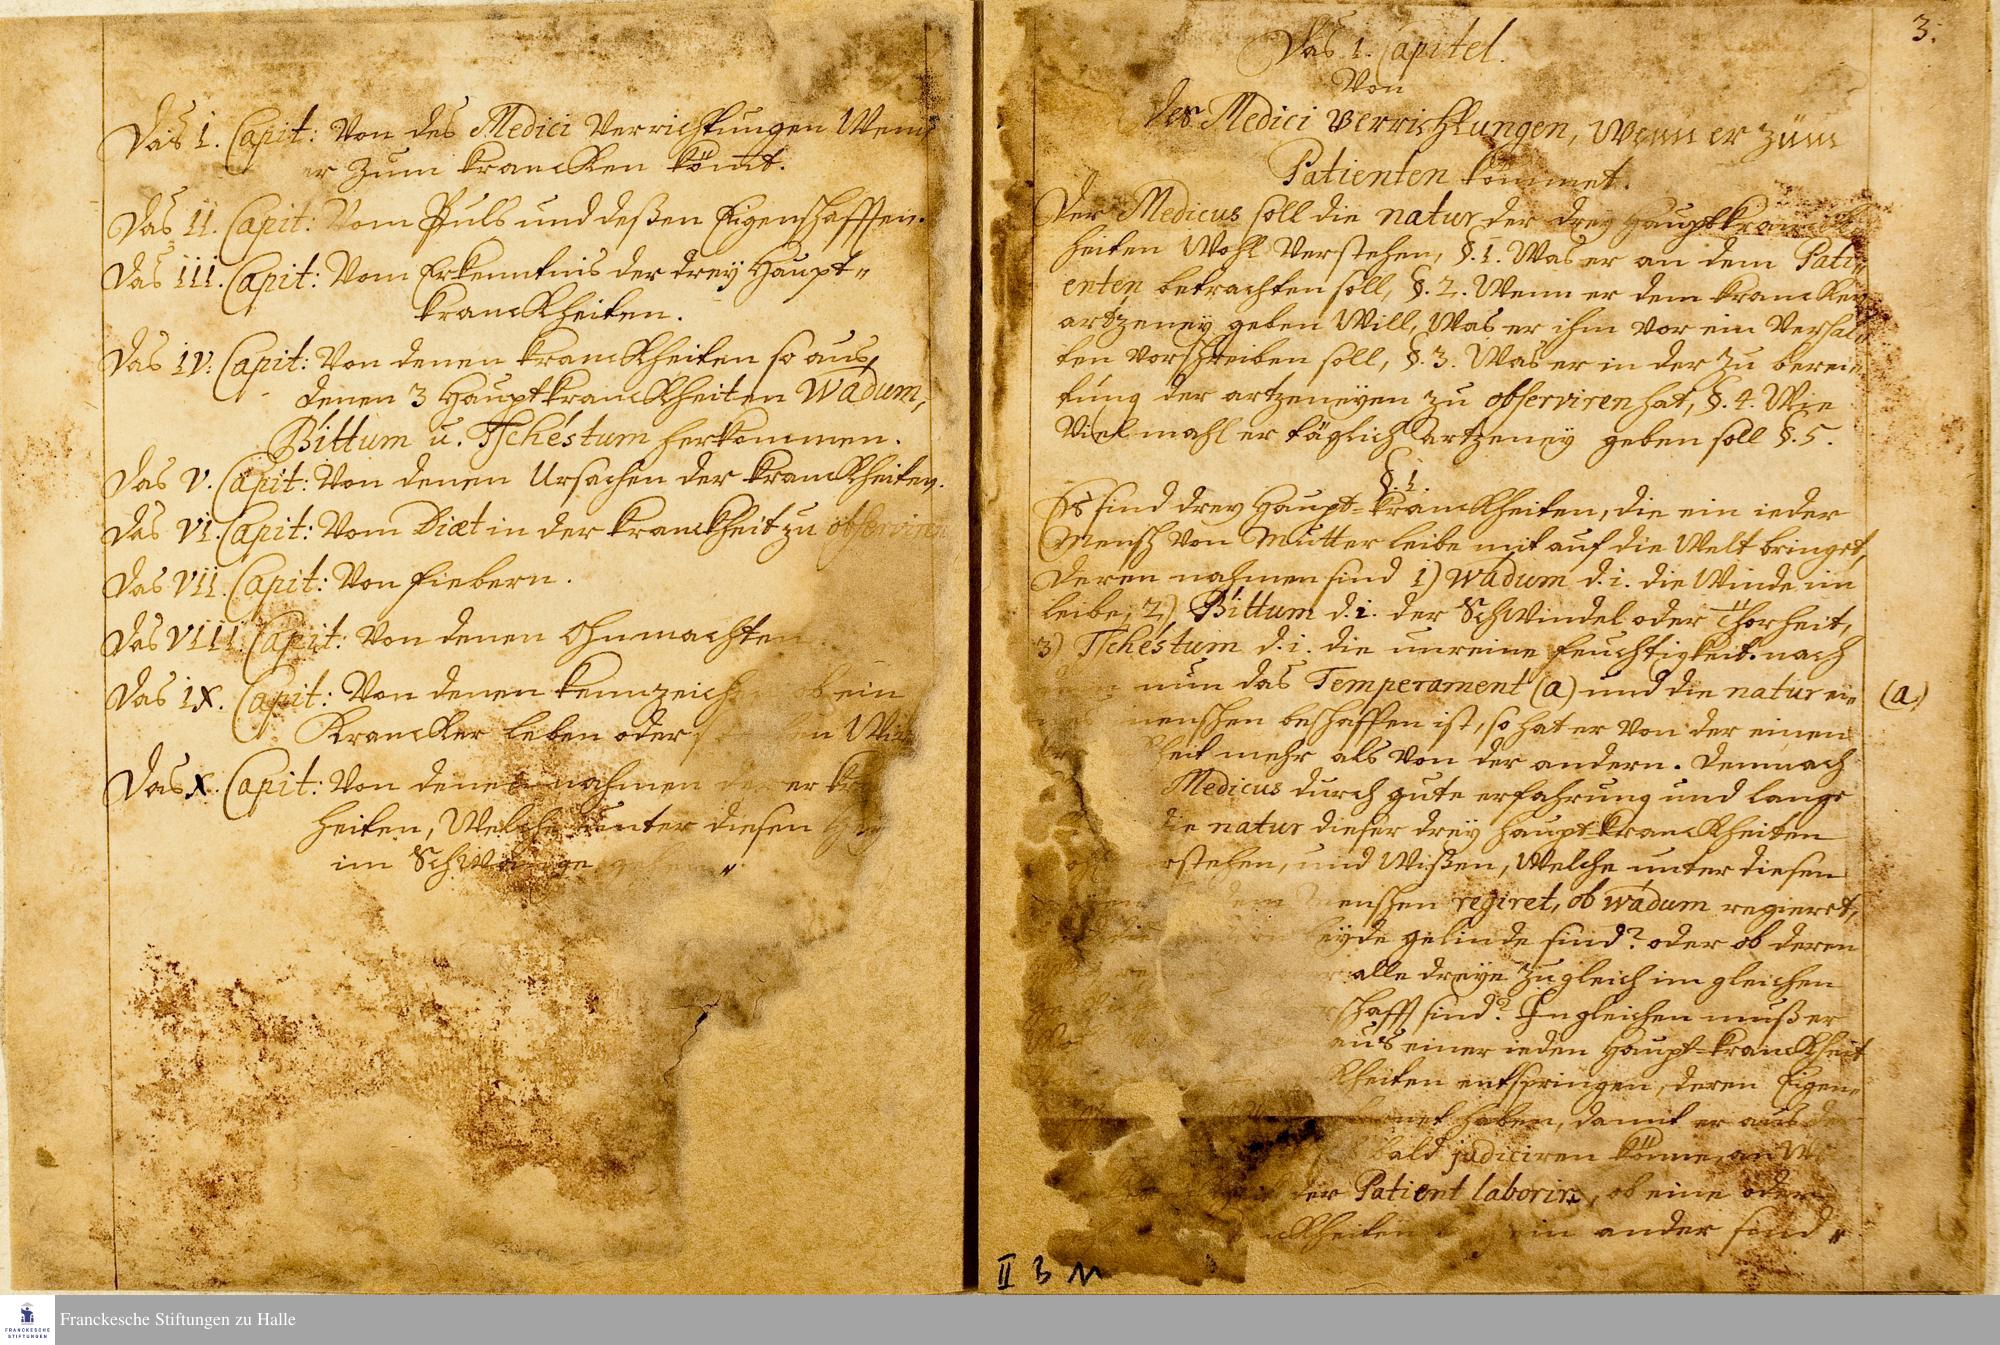 Das I. Capit: Von des Medici Verrichtungen Wenn
er zum krancken kömt.
Das II. Capit: Vom Puls und deßen Eigenschafften.
Das III. Capit: Vom Erkenntnis der drey Haupt„
kranckheiten.
Das IV. Capit: Von denen kranckheiten so aus
denen 3 Hauptkranckheiten Wádum,
Bíttum u. Tschéstum herkommen.
Das V. Capit: Von denen Ursachen der kranckheiten.
Das VI. Capit: Vom Diæt in der kranckheit zu observiren
Das VII. Capit: Von fiebern.
Das VIII. Capit: Von denen Ohnmachten
Das IX. Capit: Von denen kennzeichen ob ein
Krancker leben oder
Das X. Capit: Von denen nahmen derer
heiten, Welche unter diesen
im Schwange gehen„
3.
Das 1. Capitel.
Von
des Medici Verrichtungen, Wenn er zum
Patienten kommet.
Der Medicus soll die natur der drey Hauptkranck
heiten Wohl Verstehen, §.1. Was er an dem Pati„
enten betrachten soll, §.2. Wenn er dem krancken
artzeney geben Will, Was er ihm vor ein Verhal„
ten vorschreiben soll, §.3. Was er in der zu berei„
tung der artzeneyen zu observiren hat, §.4. Wie
Viel mahl er täglich artzeney geben soll §.5.
§.1.
Es sind drey Haupt-kranckheiten, die ein ieder
Mensch von Mutter leibe mit auf die Welt bringet,
deren nahmen sind 1) Wádum d.i. die Winde im
leibe, 2) Bíttum d.i. der Schwindel oder Thorheit,
3) Tschéstum d.i. die unreine feuchtigkeit. nach
nun das Temperament (a) und die natur ei„ (a)
menschen beschaffen ist, so hat er von der einen
heit mehr als von der andern. Demnach
Medicus durch gute erfahrung und lange
die natur dieser drey haupt-kranckheiten
rstehen, und Wißen, Welche unter diesen
Menschen regiret, ob Wádum regieret,
beyde gelinde sind? oder ob deren
alle dreye zugleich im gleichen
schafft sind? Ingleichen muß er
aus einer ieden Haupt-kranckheit
kheiten entspringen, deren Eigen„
haben, damit er aus
bald judiciren könne, an
der Patient laborire, ob eine oder
ckheiten ein ander sind„
II B 11
Franckesche Stiftungen zu Halle
FRANCKESCHE
STIFTUNGEN